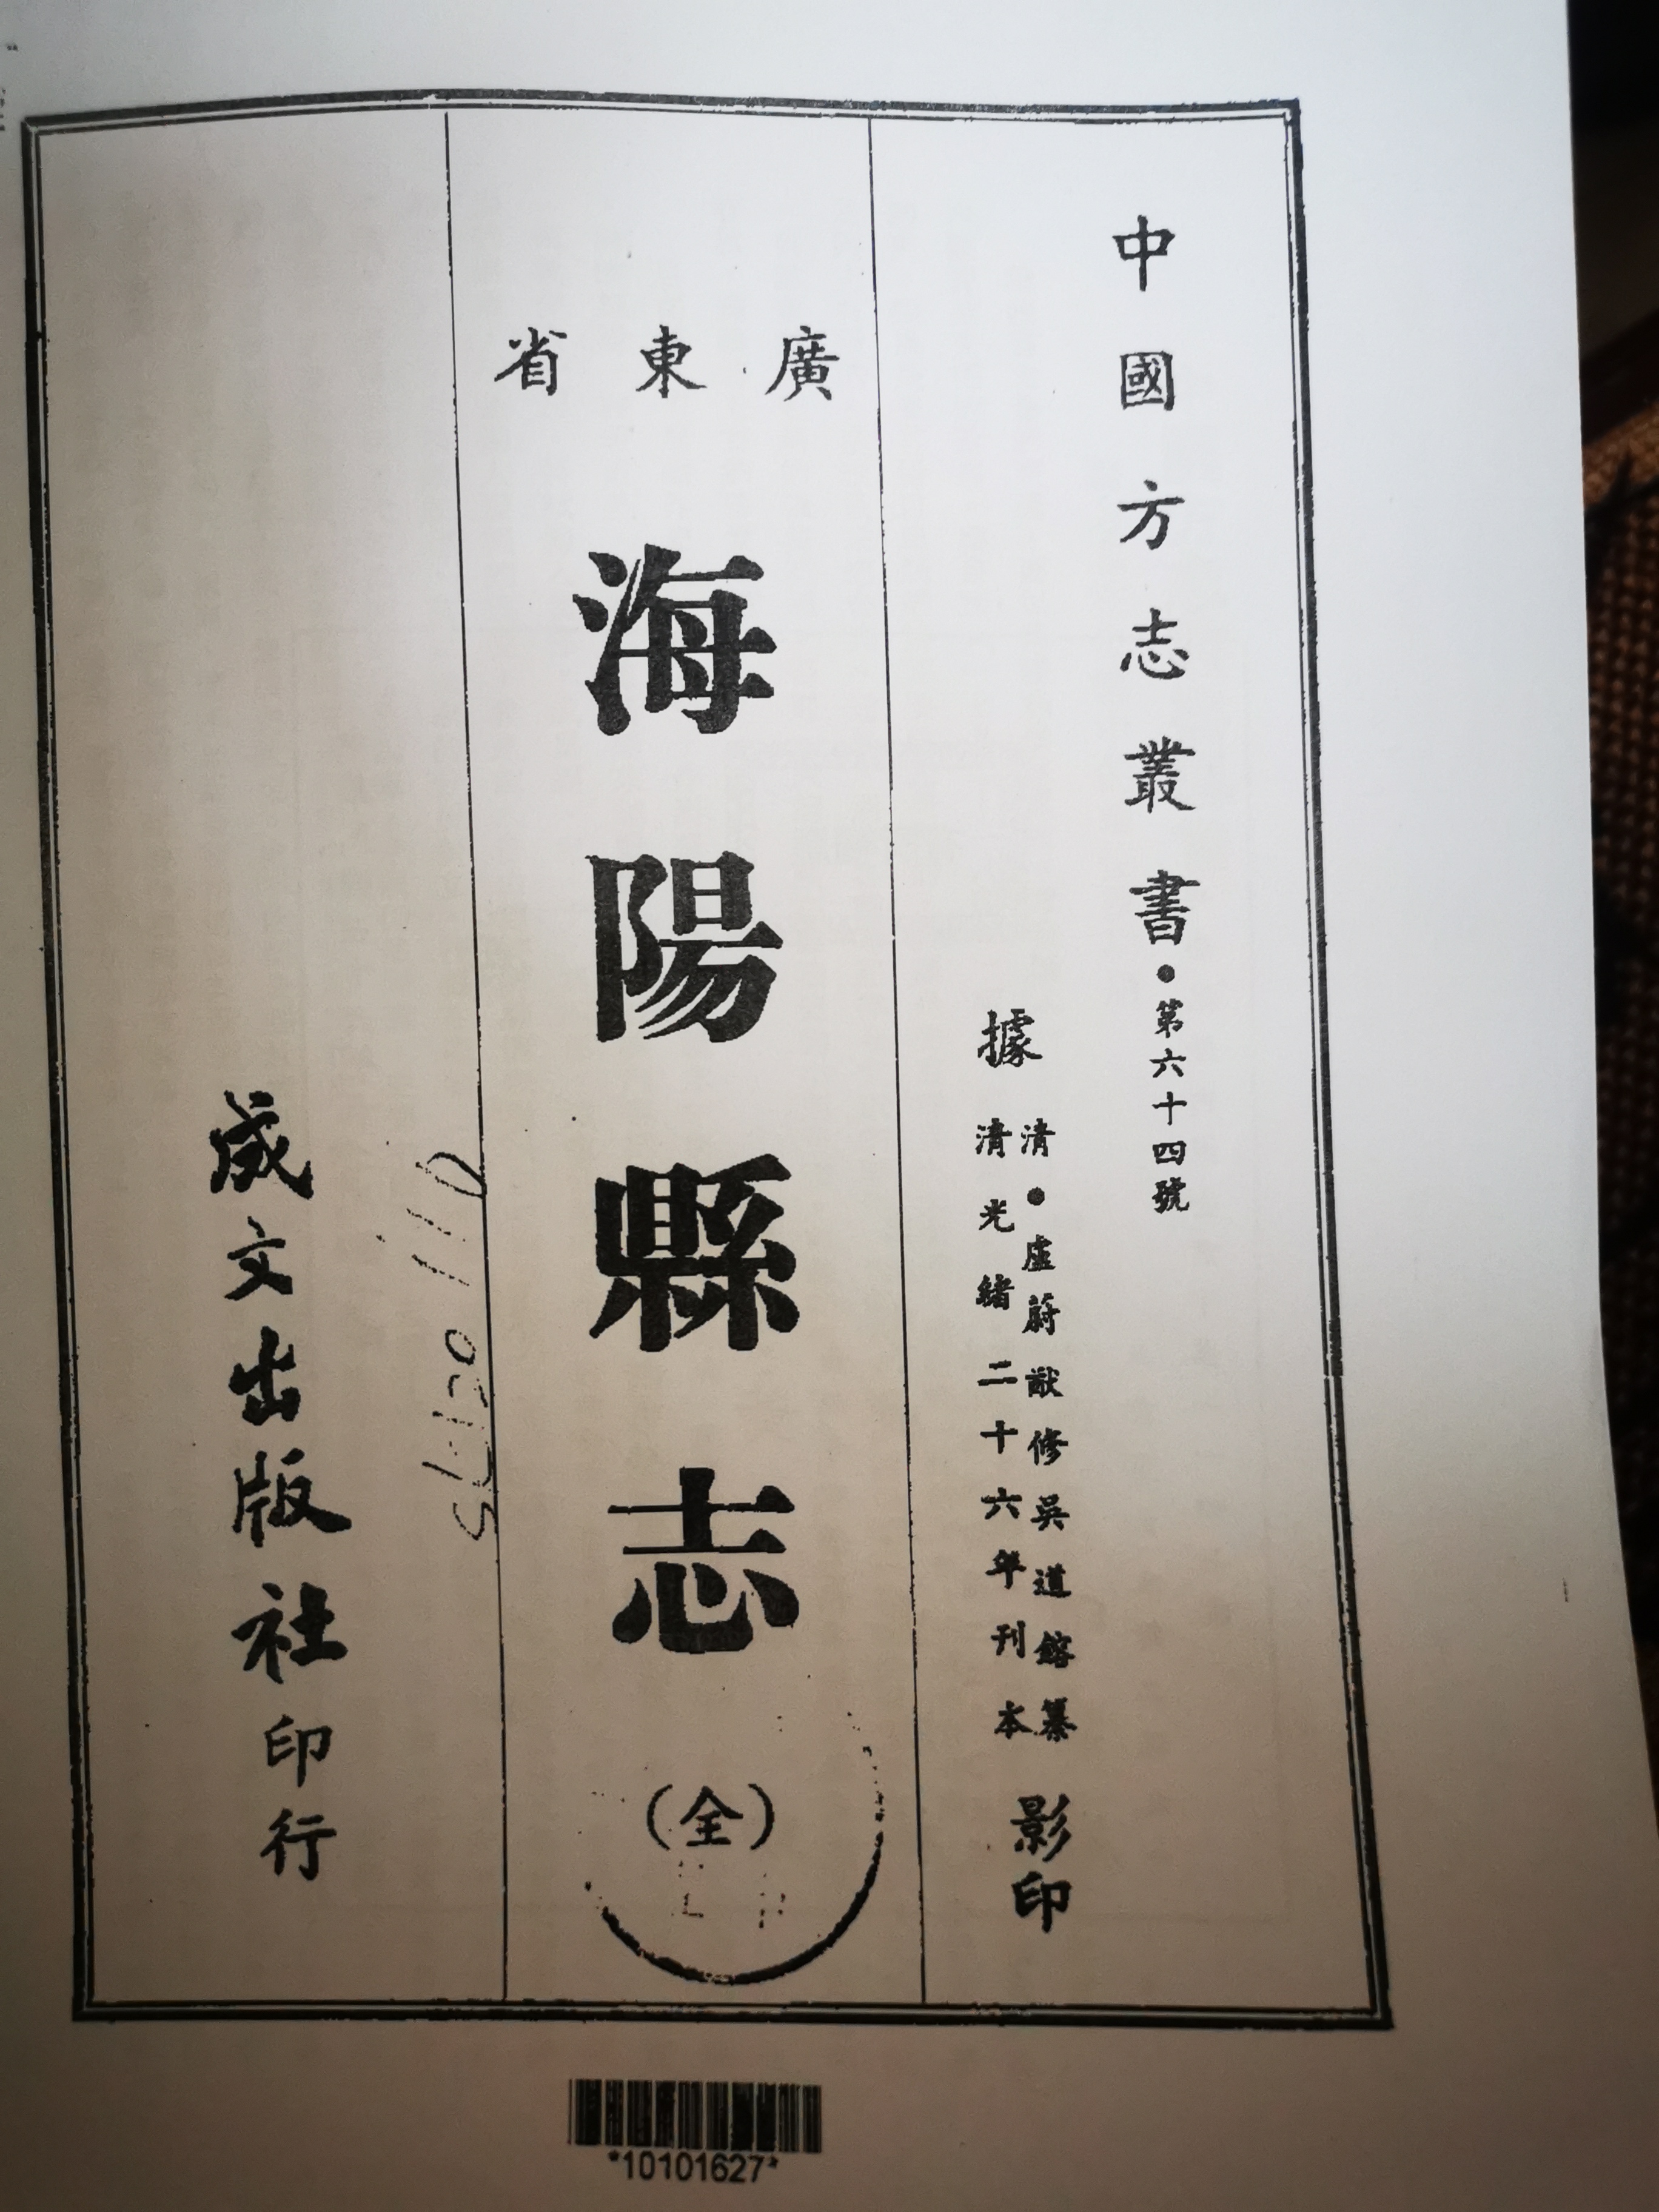 中國方志叢書•第六十四號
據
清•盧蔚猷修吳道鎔纂
清光緒二十六年刊本
影印
廣東省
海陽縣志
(全)
成文出版社印行
*10101627*